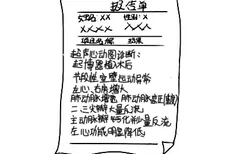 报告单
姓名: XX 性别: X
XXXX XXX
项目名称 结果
超声心动图诊断:
起搏器植入术后
节段性室壁运动异常
左心、右房增大
肺动脉增宽 肺动脉高压(轻)
二、三尖瓣大量反流
主动脉瓣钙化形量反流
左心功能明显降低